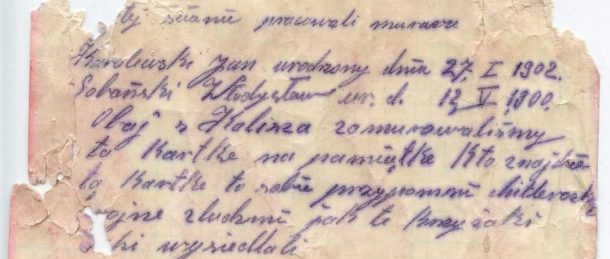 tej ścianie pracowali murarze
Karolewski Jan urodzony dnia 27. I 1902.
Sobański Władysław ur. d. 12 V 1900.
Obaj z Kalisza zamurowaliśmy
tą Kartkę na pamiątkę Kto znajdzie
tą Kartkę to sobie przypomni
jak te krzyżaki
wysiedlali